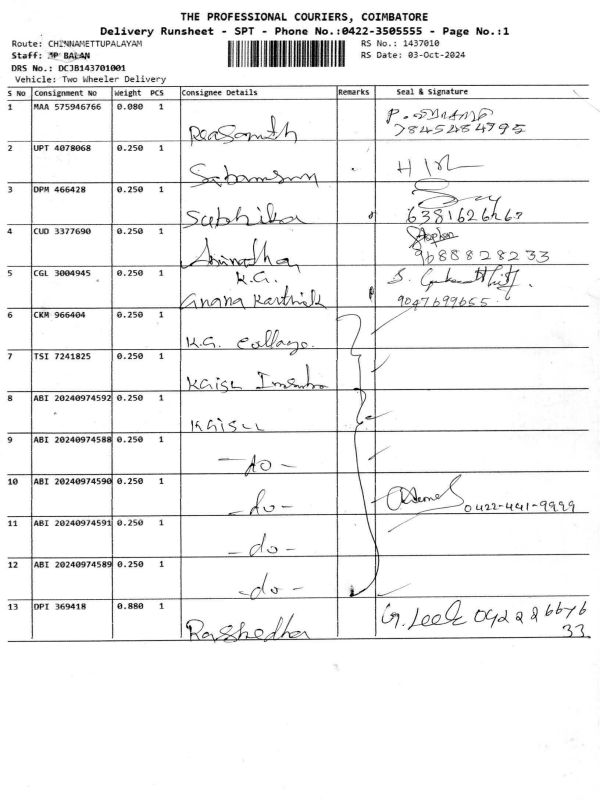 THE PROFESSIONAL COURIERS, COIMBATORE
Delivery Runsheet - SPT - Phone No.:0422-3505555 - Page No.:1
Route: CHINNAMETTUPALAYAM
RS No.: 1437010
Staff: JP BALAN
RS Date: 03-Oct-2024
DRS No.: DCJB143701001
Vehicle: Two Wheeler Delivery
S No Consignment No Weight PCS Consignee Details Remarks Seal & Signature
1 MAA 575946766 0.080 1
7845484795
2 UPT 4078068 0.250 1
3 DPM 466428 0.250 1 Subhika
6381626467
4 CUD 3377690 0.250 1 Stephen
9688828233
5 CGL 3004945 0.250 1 K.G.
Gnana Karthik 9047699655
6 CKM 966404 0.250 1 K.G. College
7 TSI 7241825 0.250 1
8 ABI 20240974592 0.250 1
9 ABI 20240974588 0.250 1 - do -
10 ABI 20240974590 0.250 1 - do - 0422-441-9999
11 ABI 20240974591 0.250 1 - do -
12 ABI 20240974589 0.250 1 - do -
13 DPI 369418 0.880 1